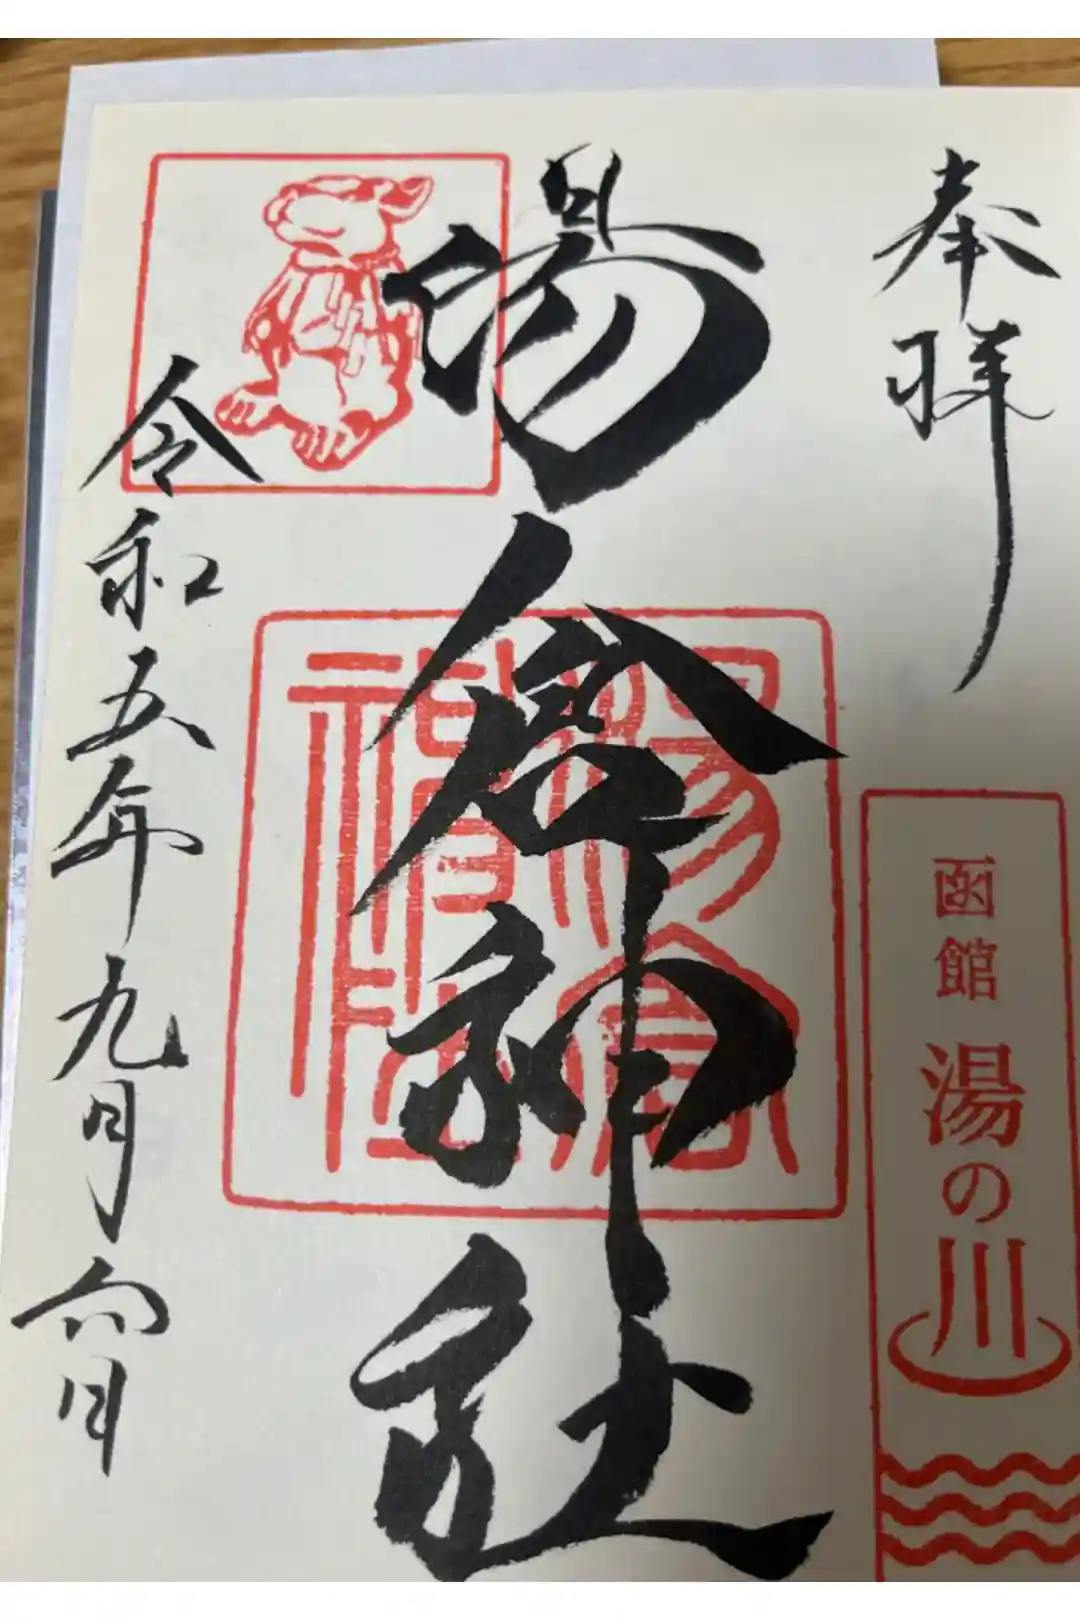 奉拝
函館 湯の川
湯倉神社
湯倉
神社
令和五年九月四日